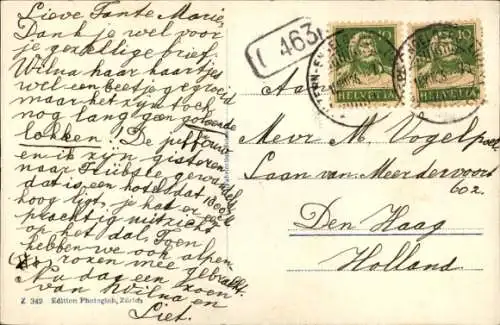 Lieve Tante Marie,
Dank je wel voor
je gezellige brief.
Wilna haar haartjes
wel een beetje gegroeid
maar het zijn toch
nog lang geen
lokken! De
en ik zijn gisteren
naar gewandeld
dat is een hotel dat 1800
hoog ligt, je hat er een
prachtig uitzicht
op het dal. Toen
hebben we ook alpen-
rozen mee gebracht.
Nu dag een zoen
van Wilna en
Liet.
Z 342 Edition Photoglob, Zürich
463
10
HELVETIA
10
HELVETIA
Aan
Mevr M. Vogelpoel
Laan van Meerdervoort
602.
Den Haag
Holland.